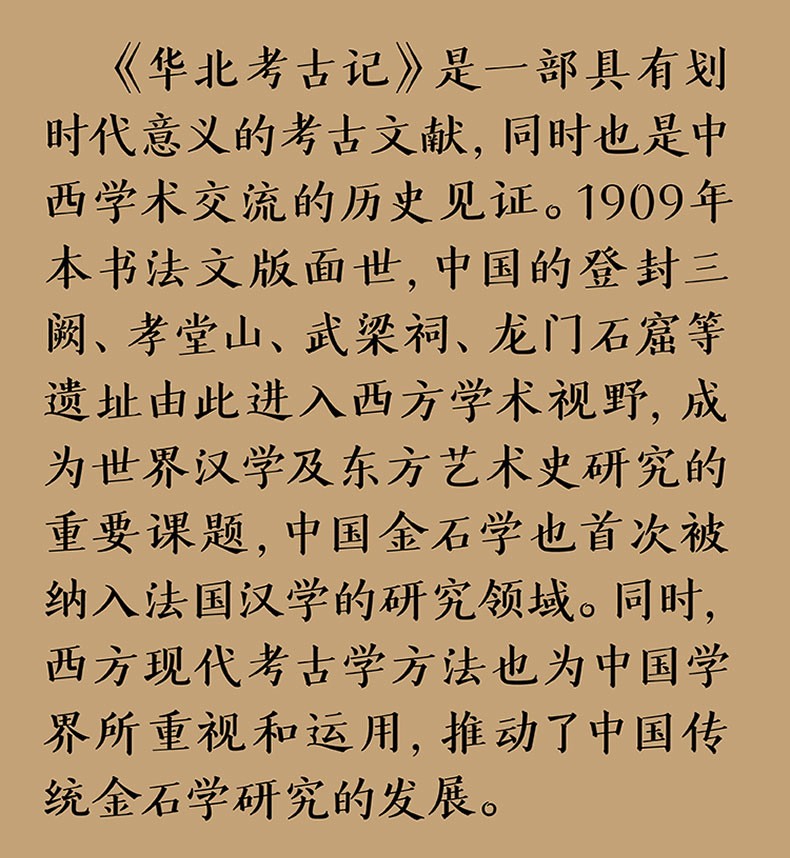 《华北考古记》是一部具有划
时代意义的考古文献，同时也是中
西学术交流的历史见证。1909年
本书法文版面世，中国的登封三
阙、孝堂山、武梁祠、龙门石窟等
遗址由此进入西方学术视野，成
为世界汉学及东方艺术史研究的
重要课题，中国金石学也首次被
纳入法国汉学的研究领域。同时，
西方现代考古学方法也为中国学
界所重视和运用，推动了中国传
统金石学研究的发展。